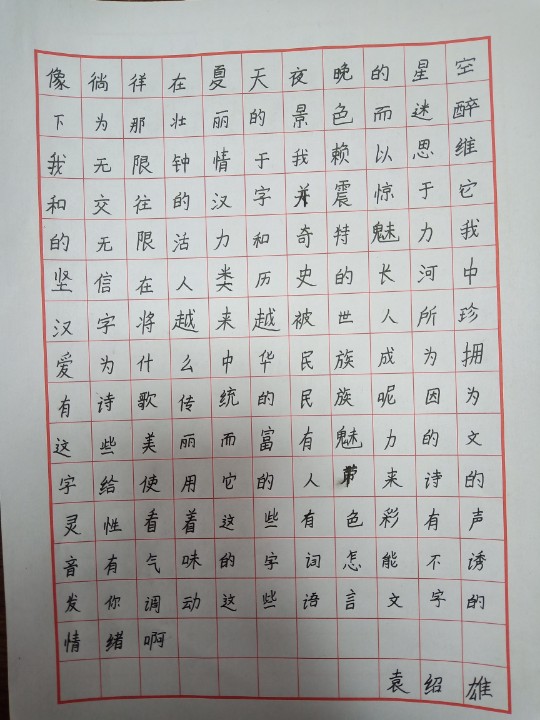 像徜徉在夏天夜晚的星空
下为那壮丽的景色而迷醉
我无限钟情于我赖以思维
和交往的汉字并震惊于它
的无限活力和奇特魅力我
坚信在人类历史的长河中
汉字将越来越被世人所珍
爱为什么中华民族成为拥
有诗歌传统的民族呢因为
这些美丽而富有魅力的文
字给使用它的人带来诗的
灵性看着这些有色彩有声
音有气味的字词怎能不诱
发你调动这些语言文字的
情绪啊
袁绍雄